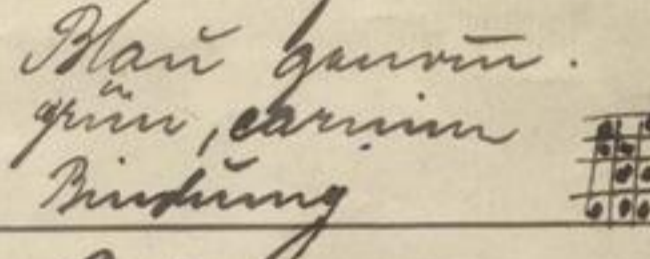 Blau genom̄.
grün, carmin
Bindung